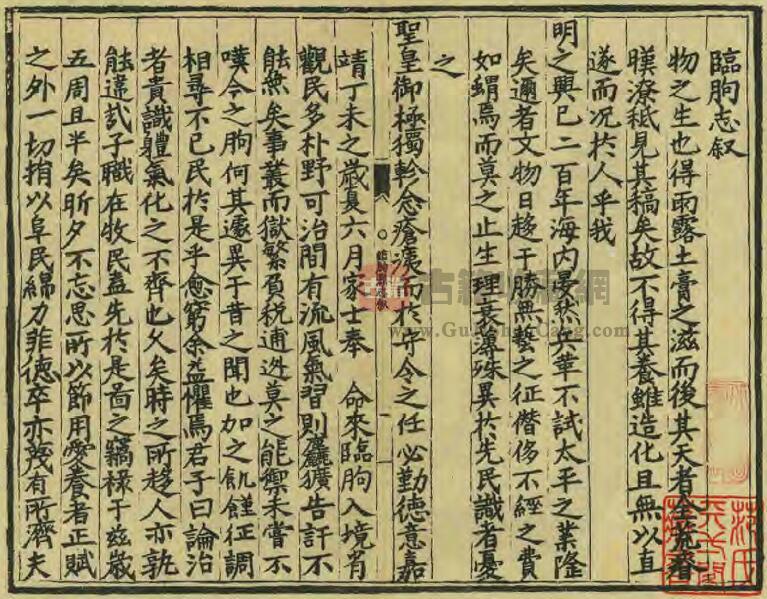 臨朐志叙
物之生也得雨露土膏之滋而後其天者全荒眚
暵潦秖見其稿矣故不得其養雖造化且無以直
遂而况扵人乎我
明之興已二百年海内晏然兵革不試太平之業隆
矣邇者文物日趍于勝無藝之征僭侈不經之費
如蝟焉而莫之止生理衰薄殊異扵先民識者憂
之
聖皇御極獨軫念瘡痍而扵守令之任必勤德意嘉
靖丁未之歲夏六月家士奉 命來臨朐入境省
觀民多朴野可治間有流風氣習則麤獷告訐不
能無矣事叢而獄繁負税逋逃莫之能禦未嘗不
嘆今之朐何其遽異于昔之聞也加之飢饉征調
相尋不已民扵是乎愈窮余益懼焉君子曰論治
者貴識體氣化之不齊也久矣時之所趍人亦孰
能違㢤子職在牧民盖先扵是啚之竊禄于兹歲
五周且半矣昕夕不忘思所以節用愛養者正賦
之外一切捐以阜民綿力菲德卒亦蔑有所濟夫
臨朐縣志叙
古籍收藏網
www.GuJiShouCang.com
范氏
天一閣